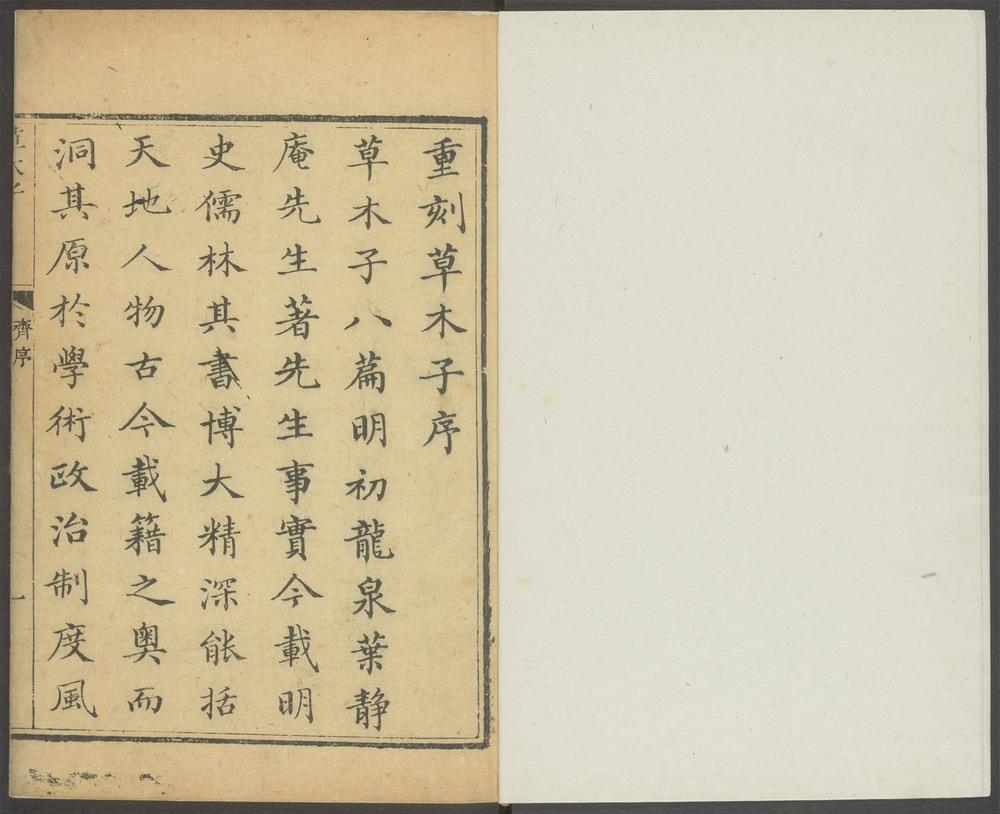 重刻草木子序
草木子八篇明初龍泉葉静
庵先生著先生事實今載明
史儒林其書博大精深能括
天地人物古今載籍之奧而
洞其原於學術政治制度風
齊序
一